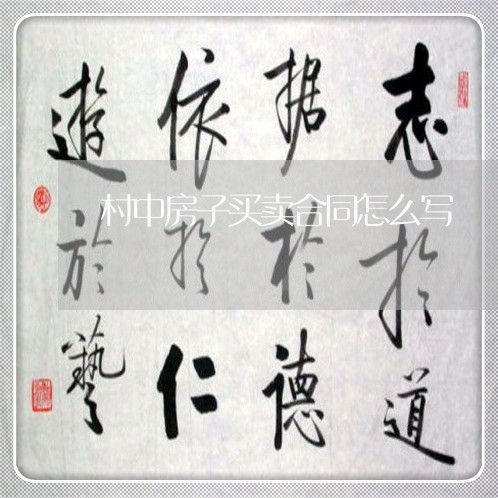 志於道
据於德
依於仁
遊於藝
村中房子买卖合同怎么写